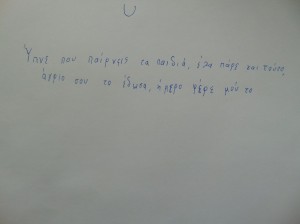 Ύπνε που παίρνεις τα παιδιά, έλα πάρε και τούτο,
άγριο σου το έδωσα, ήμερο φέρε μού το